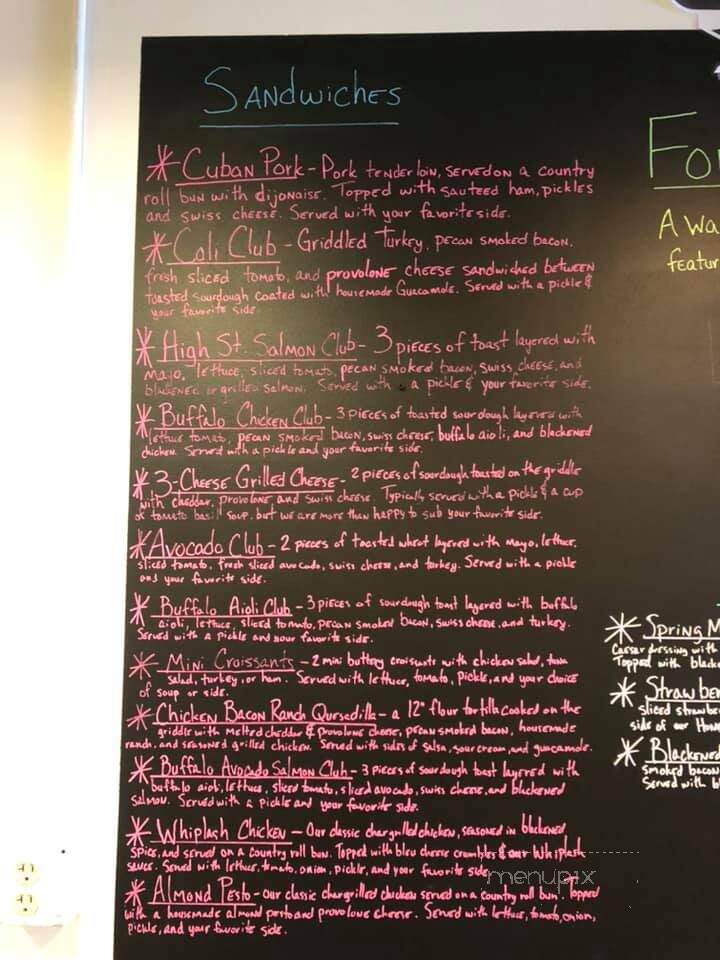 Sandwiches
* Cuban Pork - Pork tenderloin, served on a country
roll bun with dijonaise. Topped with sauteed ham, pickles
and swiss cheese. Served with your favorite side.
* Cali Club - Griddled Turkey, pecan smoked bacon,
fresh sliced tomato, and provolone cheese sandwiched between
toasted sourdough coated with housemade Guacamole. Served with a pickle &
your favorite side
* High St. Salmon Club - 3 pieces of toast layered with
mayo, lettuce, sliced tomato, pecan smoked bacon, swiss cheese, and
blackened or grilled salmon. Served with a pickle & your favorite side.
* Buffalo Chicken Club - 3 pieces of toasted sourdough layered with
lettuce tomato, pecan smoked bacon, swiss cheese, buffalo aioli, and blackened
chicken. Served with a pickle and your favorite side.
* 3-Cheese Grilled Cheese - 2 pieces of sourdough toasted on the griddle
with cheddar, provolone and swiss cheese. Typically served with a pickle & a cup
of tomato basil soup, but we are more than happy to sub your favorite side.
* Avocado Club - 2 pieces of toasted wheat layered with mayo, lettuce,
sliced tomato, fresh sliced avocado, swiss cheese, and turkey. Served with a pickle
and your favorite side.
* Buffalo Aioli Club - 3 pieces of sourdough toast layered with buffalo
aioli, lettuce, sliced tomato, pecan smoked bacon, swiss cheese, and turkey.
Served with a pickle and your favorite side.
* Mini Croissants - 2 mini buttery croissants with chicken salad, tuna
salad, turkey, or ham. Served with lettuce, tomato, pickle, and your choice
of soup or side.
* Chicken Bacon Ranch Quesadilla - a 12" flour tortilla cooked on the
griddle with melted cheddar & provolone cheese, pecan smoked bacon, housemade
ranch, and seasoned grilled chicken. Served with sides of salsa, sour cream, and guacamole.
* Buffalo Avocado Salmon Club - 3 pieces of sourdough toast layered with
buffalo aioli, lettuce, sliced tomato, sliced avocado, swiss cheese, and blackened
salmon. Served with a pickle and your favorite side.
* Whiplash Chicken - Our classic chargrilled chicken, seasoned in blackened
spice, and served on a country roll bun. Topped with bleu cheese crumbles & our Whiplash
sauce. Served with lettuce, tomato, onion, pickle, and your favorite side
* Almond Pesto - Our classic chargrilled chicken served on a country roll bun. Topped
with a housemade almond pesto and provolone cheese. Served with lettuce, tomato, onion,
pickle, and your favorite side.
menupix
Fo
A Wa
featur
* Spring M
Caesar dressing with
Topped with blacke
* Strawber
sliced strawber
side of our Hom
* Blackened
smoked bacon
Served with bl